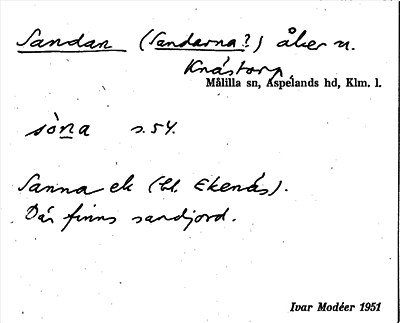 Sandan (Sandarna?) åker n.
Knåstorp,
Målilla sn, Aspelands hd, Klm. l.
sòna s. 54.
Sanna ek (bl. Ekenäs).
Där finns sandjord.
Ivar Modéer 1951